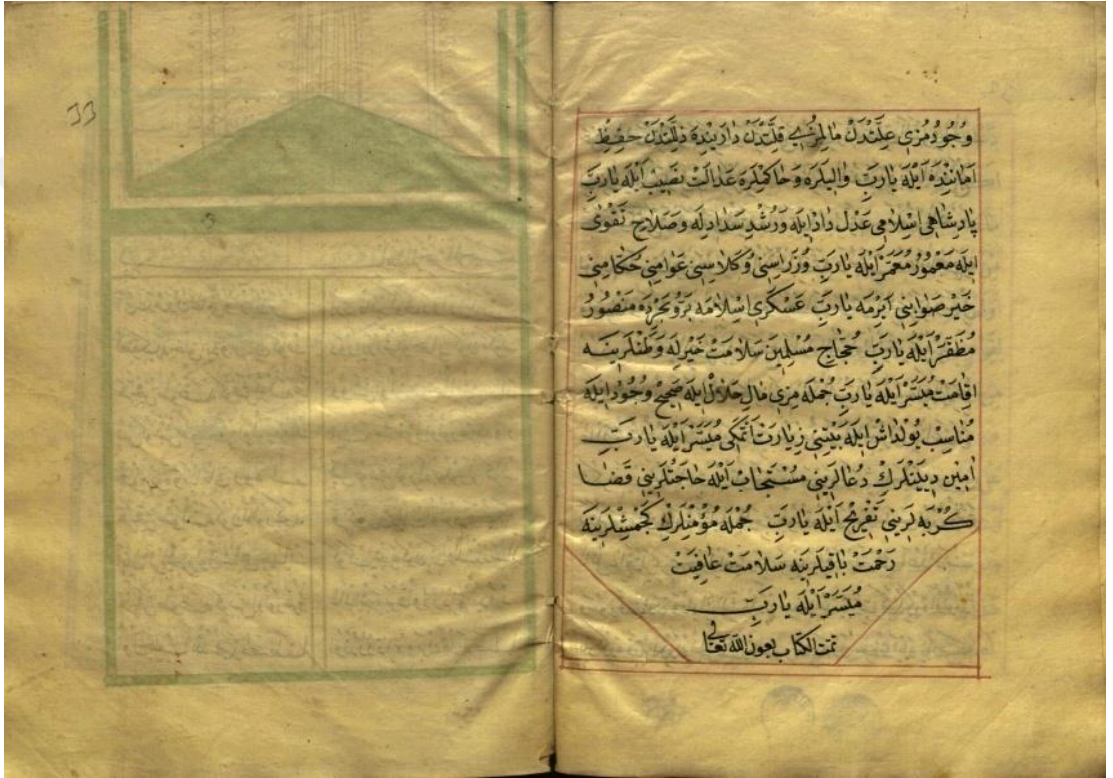 وُجُودُمُزِی عِلَّتْدَنْ مٰالِمُزِی قِلَّتْدَنْ دَارَیْنْدَهْ ذِلَّتْدَنْ حِفْظِ
اَمَانِنْدَهْ اَیْلَهْ یٰارَبِّ وَالِیلَرَهْ وَحَاکِمْلَرَهْ عَدَالَتْ نَصِیبْ اَیْلَهْ یٰارَبِّ
پٰادِشٰاهِی اِسْلٰامِی عَدْلِ دَادْ اِیلَهْ وَرُشْدِ سَدَادِلَهْ وَصَلَاحِ تَقْوٰی
اِیلَهْ مَعْمُورْ مُعَمَّرْ اَیْلَهْ یٰارَبِّ وُزَرَاسِنِی وُکَلٰاسِنِی عَوَامِنِی حُکَّامِنِی
خَیْرْ صَوَابِنِی اَیِرْمَهْ یٰارَبِّ عَسْکَرِی اِسْلٰامَهْ بَرُّو بَحْرْدَهْ مَنْصُورُ
مُظَفَّرْ اَیْلَهْ یٰارَبِّ حُجَّاجِ مُسْلِمِینَ سَلٰامَتْ خَیْرِلَهْ وَطَنْلَرِینَهْ
اِقَامَتْ مُیَسَّرْ اَیْلَهْ یٰارَبِّ جُمْلَهْ مِزِی مٰالِ حَلٰالْ اِیلَهْ صَحِیحْ وُجُودْ اِیلَهْ
مُنٰاسِبْ یُولْدَاشْ اِیلَهْ بَیْتِنِی زِیٰارَتْ اَتْمَکِی مُیَسَّرْ اَیْلَهْ یٰارَبِّ
اٰمِینْ دِییَنْلَرِكْ دُعٰالَرِینِی مُسْتَجٰابْ اَیْلَهْ حَاجَتْلَرِینِی قَضٰا
کُرْبَهْ لَرِینِی تَفْرِیحْ اَیْلَهْ یٰارَبِّ جُمْلَهْ مُؤْمِنْلَرِكْ کَچْمِشْلَرِینَهْ
رَحْمَتْ بٰاقِیلَرِینَهْ سَلٰامَتْ عٰافِیَتْ
مُیَسَّرْ اَیْلَهْ یٰارَبِّ
تمت الکتاب بعون الله تعالی